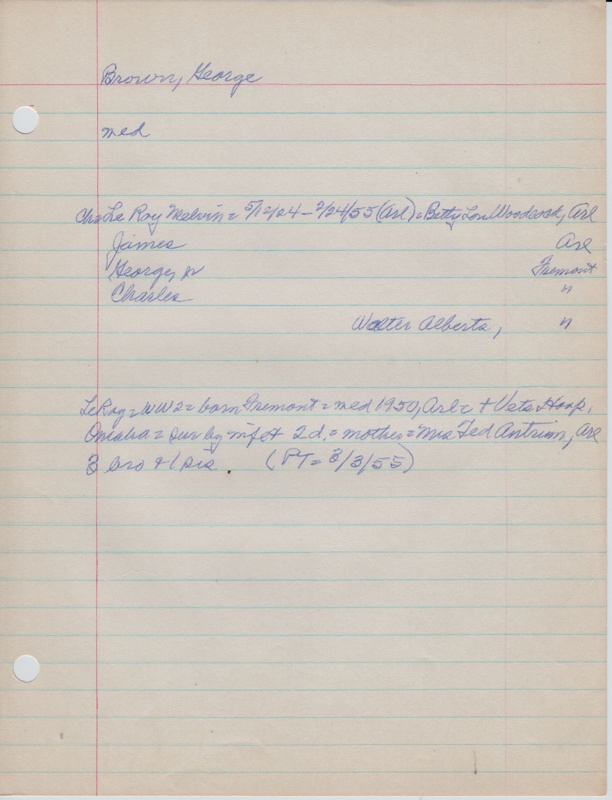 Brown, George
med
Chs Le Roy Melvin = 5/12/24 - 2/24/55 (Arl) = Betty Lou Woodcock, Arl
James Arl
George, Jr Fremont
Charles "
Walter Alberts, "
LeRoy = WW2 = born Fremont = med 1950, Arl = + Vets Hosp.
Omaha = sur by wife + 2 d. = mother = Mrs Ted Antrim, Arl
3 bro + 1 sis. (PT = 3/3/55)